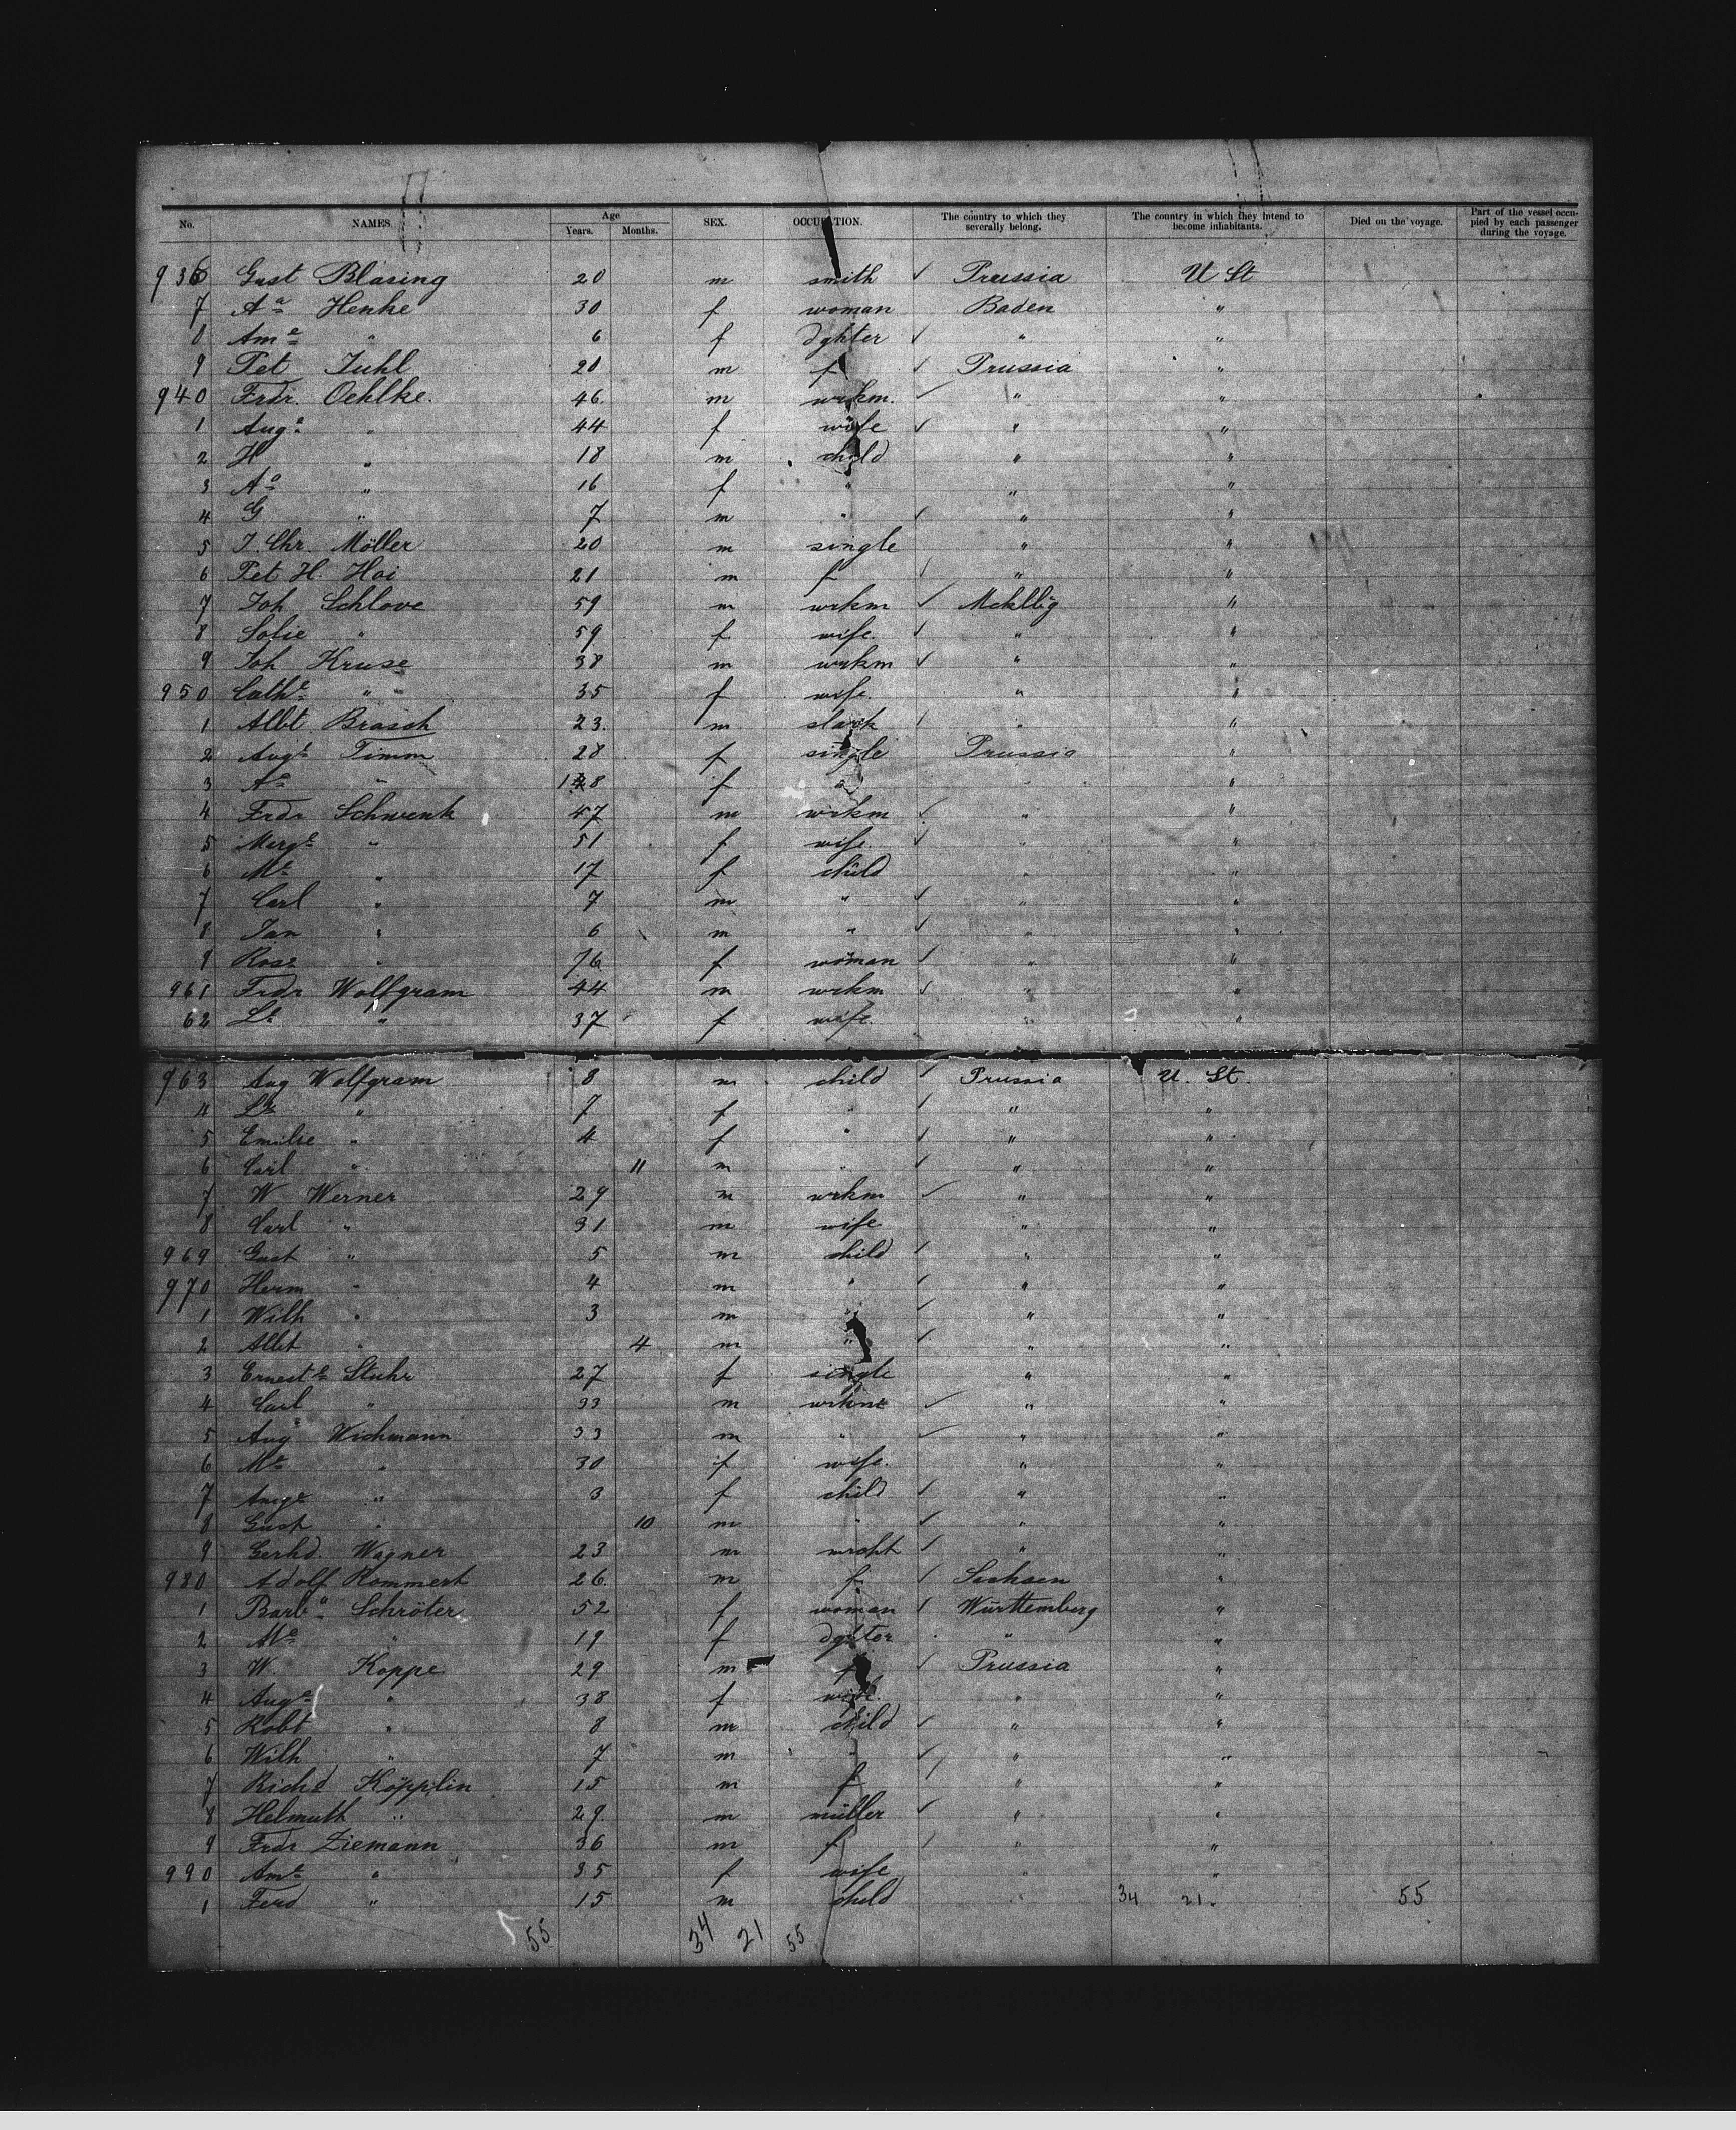 No. NAMES. Age Years. Months. SEX. OCCUPATION. The country to which they severally belong. The country in which they intend to become inhabitants. Died on the voyage. Part of the vessel occupied by each passenger during the voyage.
936 Gust Blasing 20 m smith ✓ Prussia U St
7 Aᵃ Henke 30 f woman Baden "
8 Amᵉ " 6 f dghter ✓ " "
9 Pet Juhl 20 m f ✓ Prussia "
940 Frdr. Oehlke. 46. m wrkm. ✓ " "
1 Augᵉ " 44 f wife ✓ " "
2 H " 18 m child " "
3 Aᵉ " 16 f " " "
4 G " 7 m " ✓ " "
5 J. Chr. Möller 20 m single " "
6 Pet H. Hoi 21 m f ✓ " "
7 Joh Schlove 59 m wrkm ✓ Mcklbg "
8 Sofie " 59 f wife. ✓ " "
9 Joh Kruse 38 m wrkm ✓ " "
950 Cathᵉ " 35 f wife. " "
1 Albt Brasch 23. m ✓ " "
2 Augᵉ Timm 28 f single Prussia "
3 Aᵉ " f " " "
4 Frdr Schwenk 47 m wrkm ✓ " "
5 Margᵉ " 51 f wife. ✓ " "
6 Mᵉ " 17 f child " "
7 Carl " 7 m " ✓ " "
8 Jan " 6 m " ✓ " "
9 Rosa " 76 f woman ✓ " "
961 Frdr Wolfgram 44 m wrkm ✓ " "
62 Lᵉ " 37 f wife. " "
963 Aug Wolfgram 8 m child ✓ Prussia U. St.
4 Lᵉ " 7 f " ✓ " "
5 Emilie " 4 f " ✓ " "
6 Carl " 11 m " ✓ " "
7 W Werner 29 m wrkm ✓ " "
8 Carl " 31 m wife " "
969 Gust " 5 m child ✓ " "
970 Herm " 4 m " ✓ " "
1 Wilh " 3 m " ✓ " "
2 Albt " 4 m " ✓ " "
3 Ernestᵉ Stuhr 27 f single " "
4 Carl " 33 m wrkm ✓ " "
5 Aug Wichmann 33 m " ✓ " "
6 Mᵉ " 30 f wife. " "
7 Augᵉ " 3 f child ✓ " "
8 Gust " 10 m " ✓ " "
9 Gerhd. Wagner 23 m mrcht ✓ " "
980 Adolf Rommert 26. m f ✓ Sachsen "
1 Barbᵃ Schröter 52 f woman ✓ Württemberg "
2 Mᵉ " 19 f dghter " "
3 W. Koppe 29 m f ✓ Prussia "
4 Augᵉ " 38 f wife. " "
5 Robt " 8 m child ✓ " "
6 Wilh " 7 m " ✓ " "
7 Richd Köpplin 15 m f ✓ " "
8 Helmuth " 29. m müller ✓ " "
9 Frdr Ziemann 36 m f ✓ " "
990 Amᵉ " 35 f wife " "
1 Ferd " 15 m child " 34 21. 55
55 34 21 55